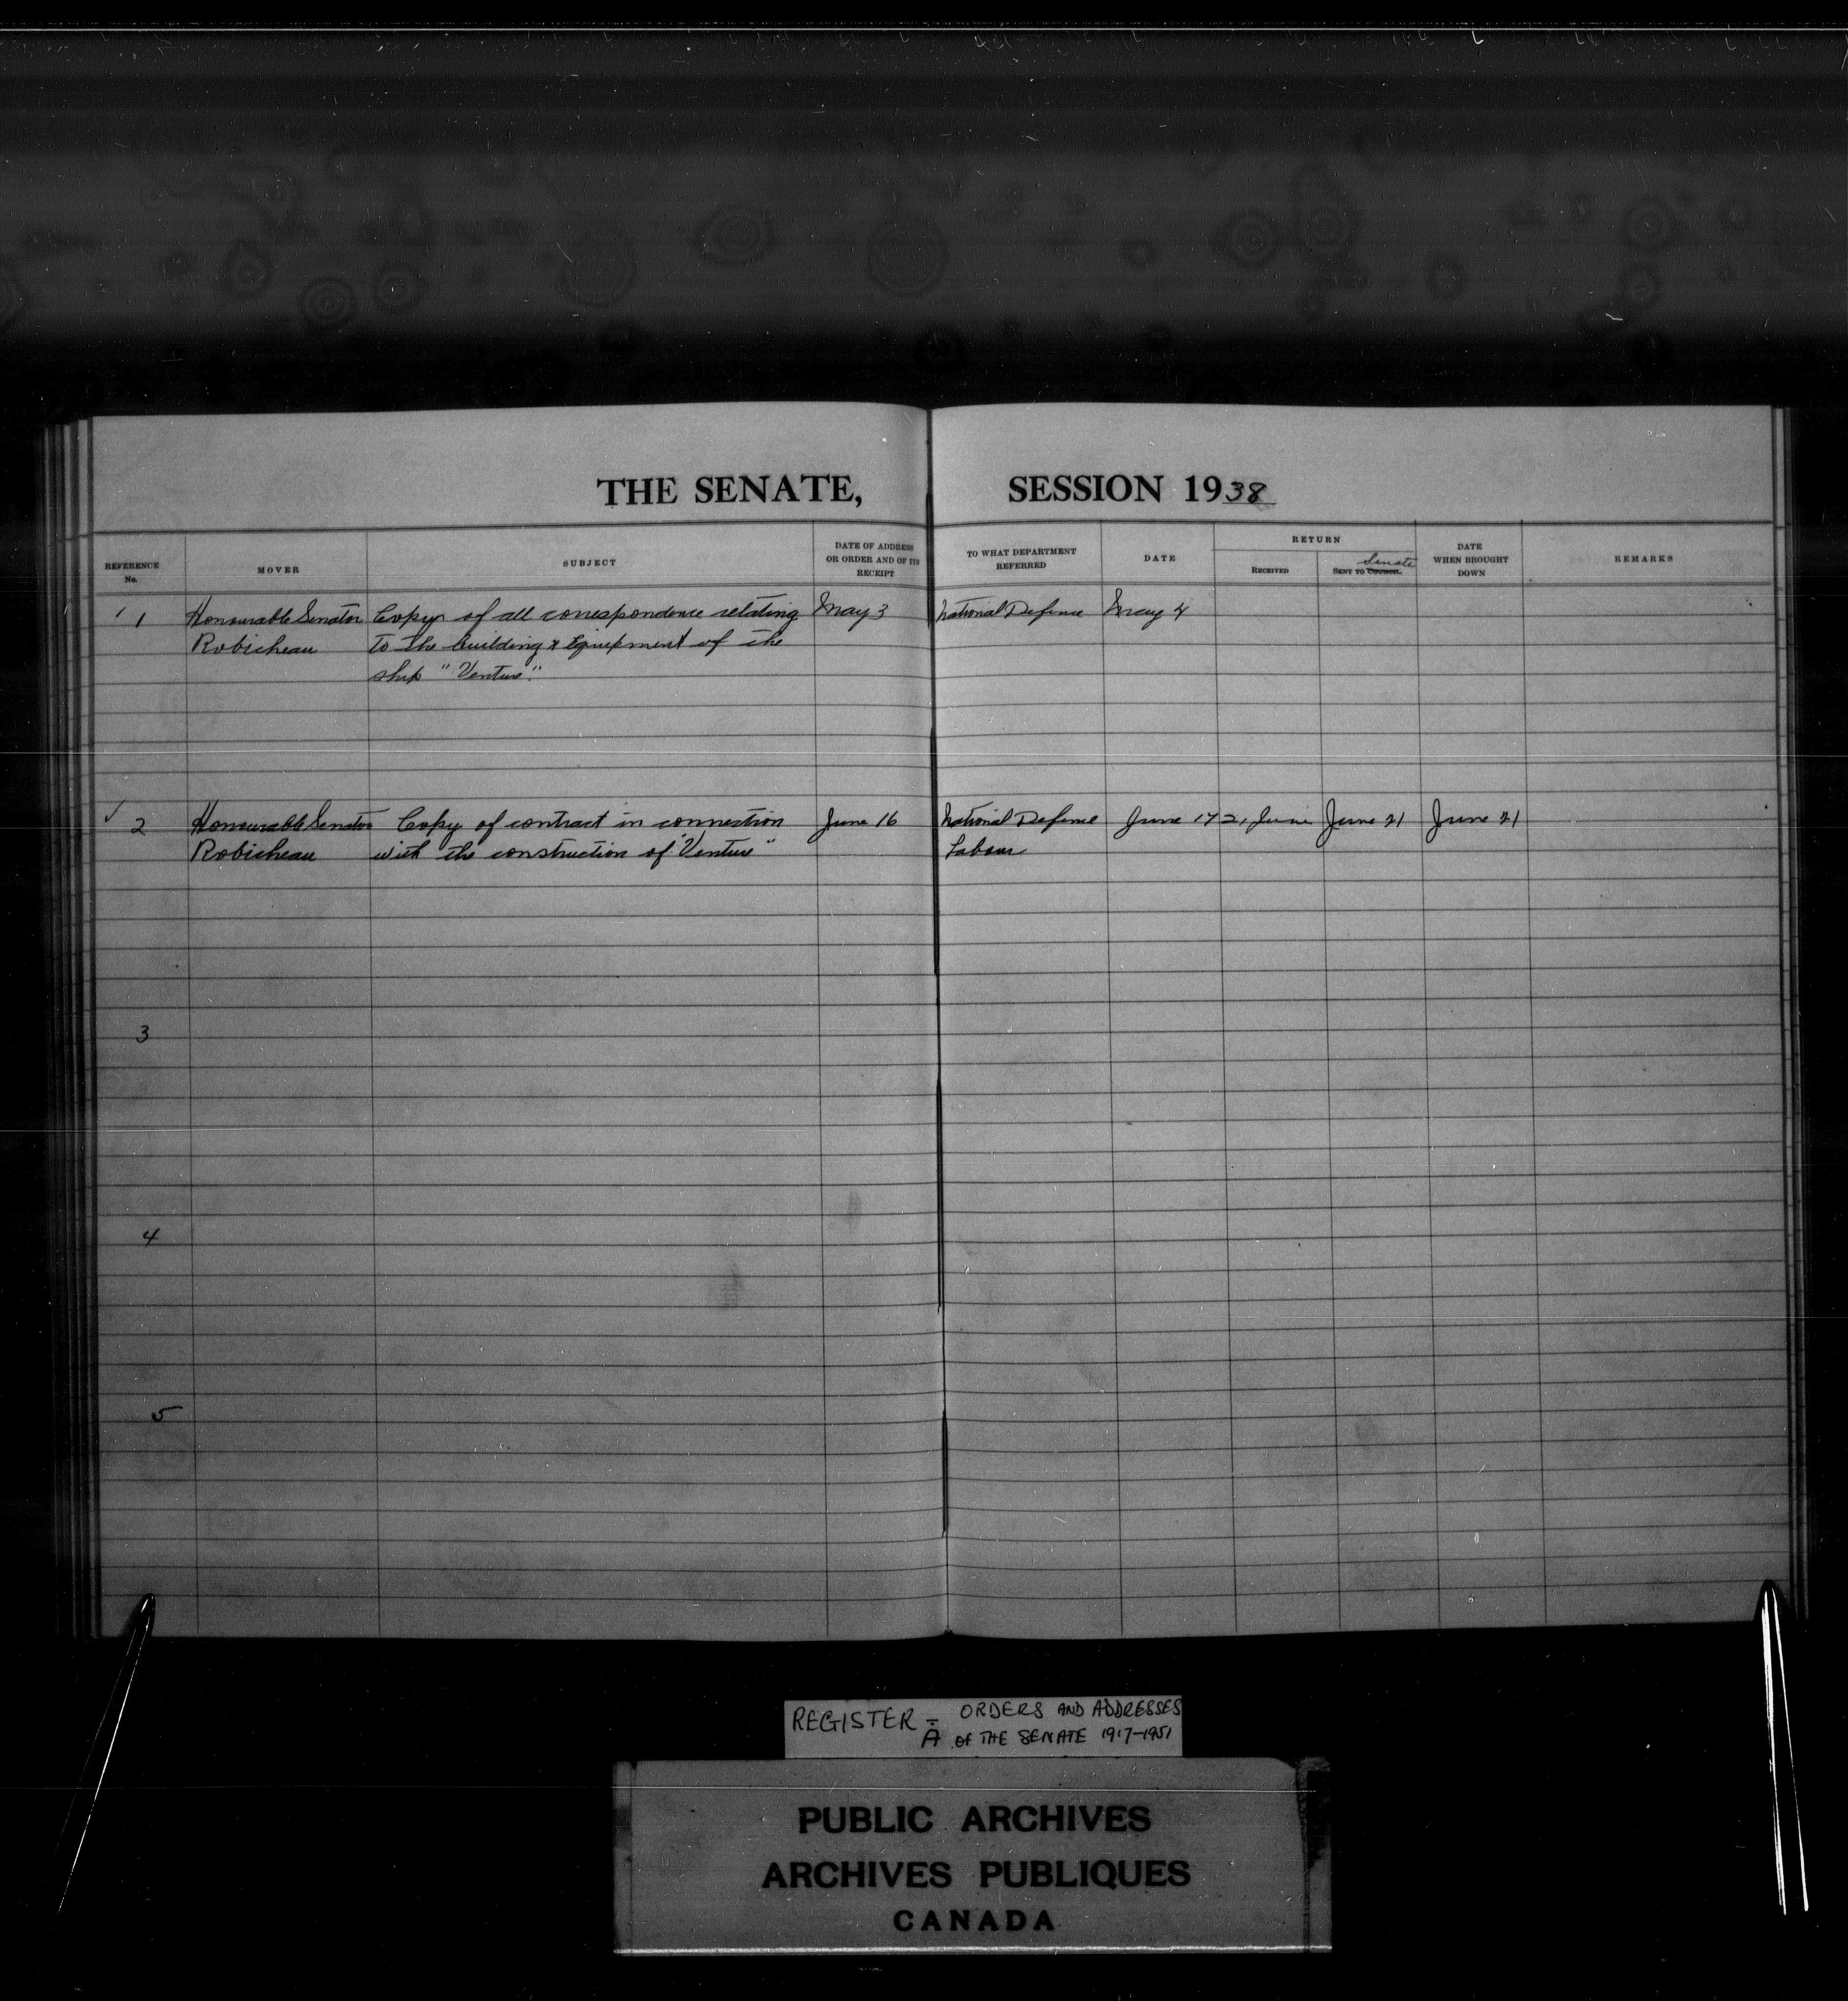 THE SENATE, SESSION 1938
REFERENCE No.
MOVER
SUBJECT
DATE OF ADDRESS OR ORDER AND OF ITS RECEIPT
TO WHAT DEPARTMENT REFERRED
DATE
RETURN
RECEIVED
SENT TO COUNCIL. Senate
DATE WHEN BROUGHT DOWN
REMARKS
1 Honourable Senator Copy of all correspondence relating May 3 National Defence May 4
Robicheau to the building & Equipment of the
ship "Venture".
2 Honourable Senator Copy of contract in connection June 16 National Defence June 17 21 June June 21 June 21
Robicheau with the construction of "Venture" Labour
3
4
5
REGISTER - ORDERS AND ADDRESSES
A OF THE SENATE 1917-1951
PUBLIC ARCHIVES
ARCHIVES PUBLIQUES
CANADA